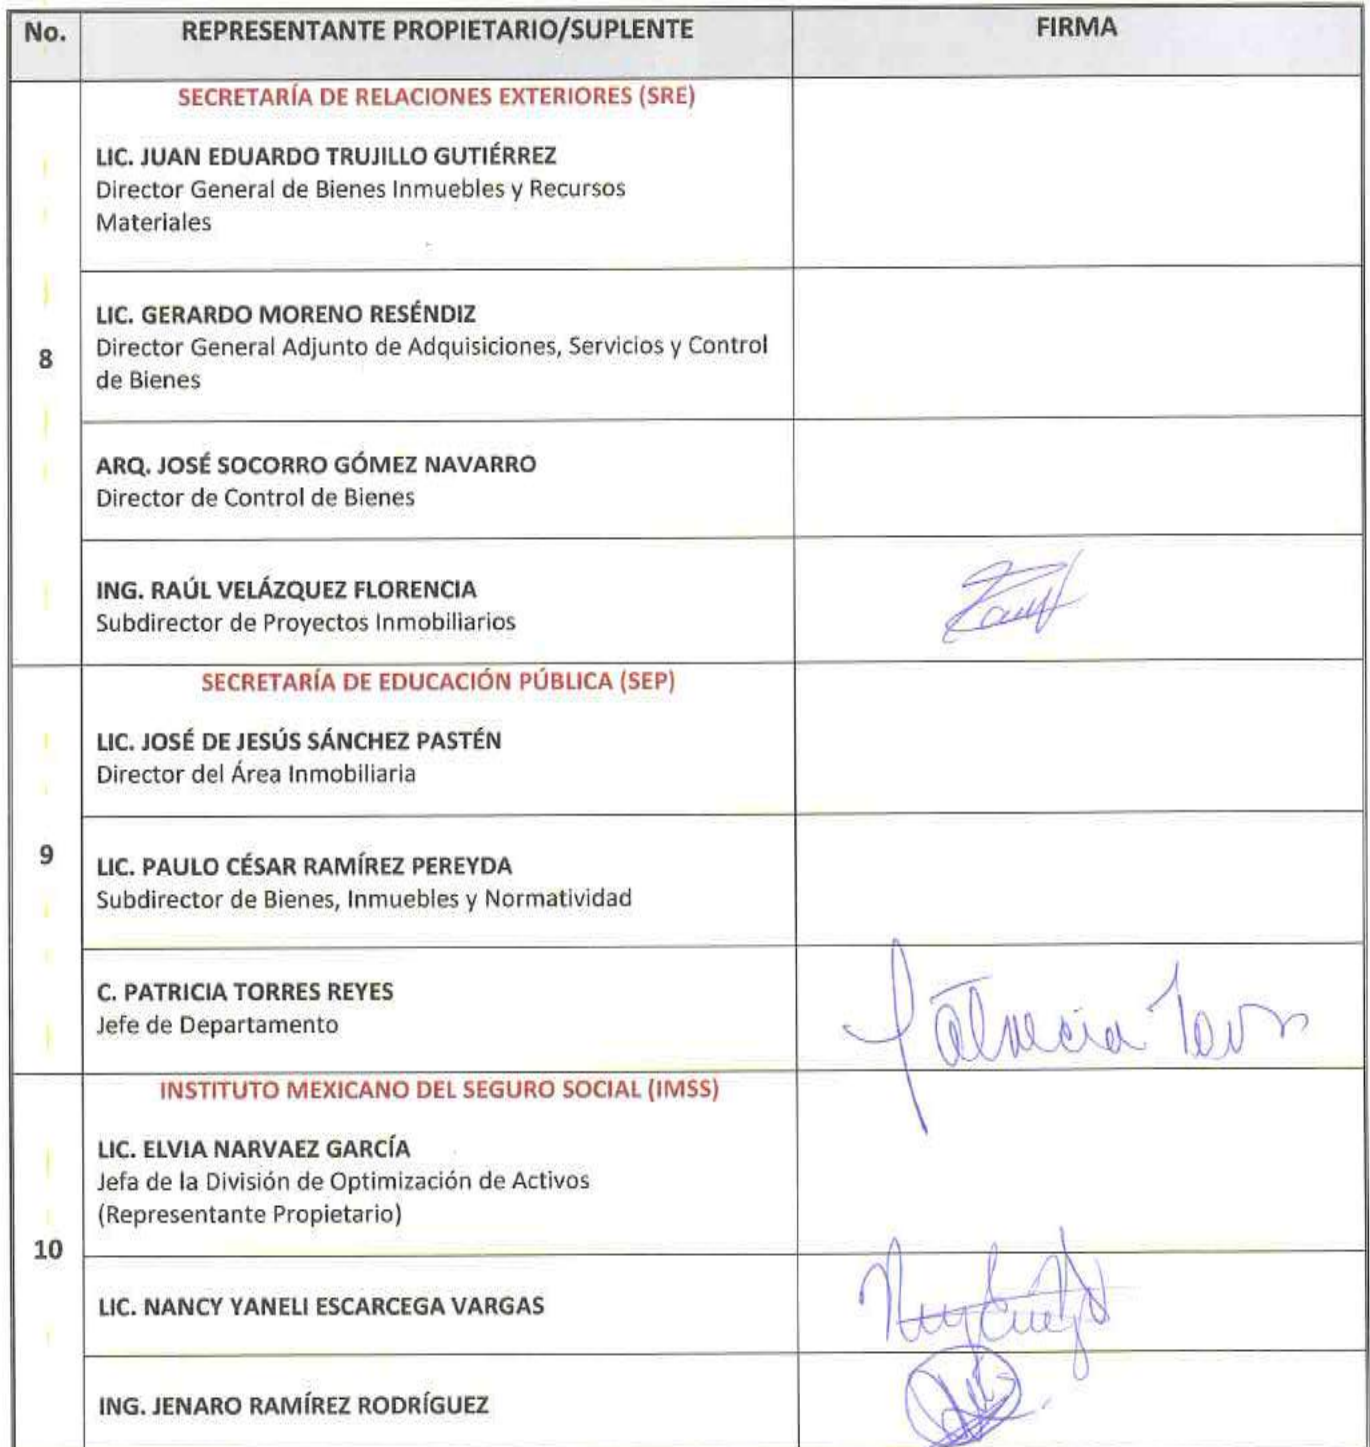 No.
REPRESENTANTE PROPIETARIO/SUPLENTE
FIRMA
SECRETARÍA DE RELACIONES EXTERIORES (SRE)
LIC. JUAN EDUARDO TRUJILLO GUTIÉRREZ
Director General de Bienes Inmuebles y Recursos
Materiales
8
LIC. GERARDO MORENO RESÉNDIZ
Director General Adjunto de Adquisiciones, Servicios y Control
de Bienes
ARQ. JOSÉ SOCORRO GÓMEZ NAVARRO
Director de Control de Bienes
ING. RAÚL VELÁZQUEZ FLORENCIA
Subdirector de Proyectos Inmobiliarios
SECRETARÍA DE EDUCACIÓN PÚBLICA (SEP)
LIC. JOSÉ DE JESÚS SÁNCHEZ PASTÉN
Director del Área Inmobiliaria
9
LIC. PAULO CÉSAR RAMÍREZ PEREYDA
Subdirector de Bienes, Inmuebles y Normatividad
C. PATRICIA TORRES REYES
Jefe de Departamento
Patricia
INSTITUTO MEXICANO DEL SEGURO SOCIAL (IMSS)
LIC. ELVIA NARVAEZ GARCÍA
Jefa de la División de Optimización de Activos
(Representante Propietario)
10
LIC. NANCY YANELI ESCARCEGA VARGAS
ING. JENARO RAMÍREZ RODRÍGUEZ